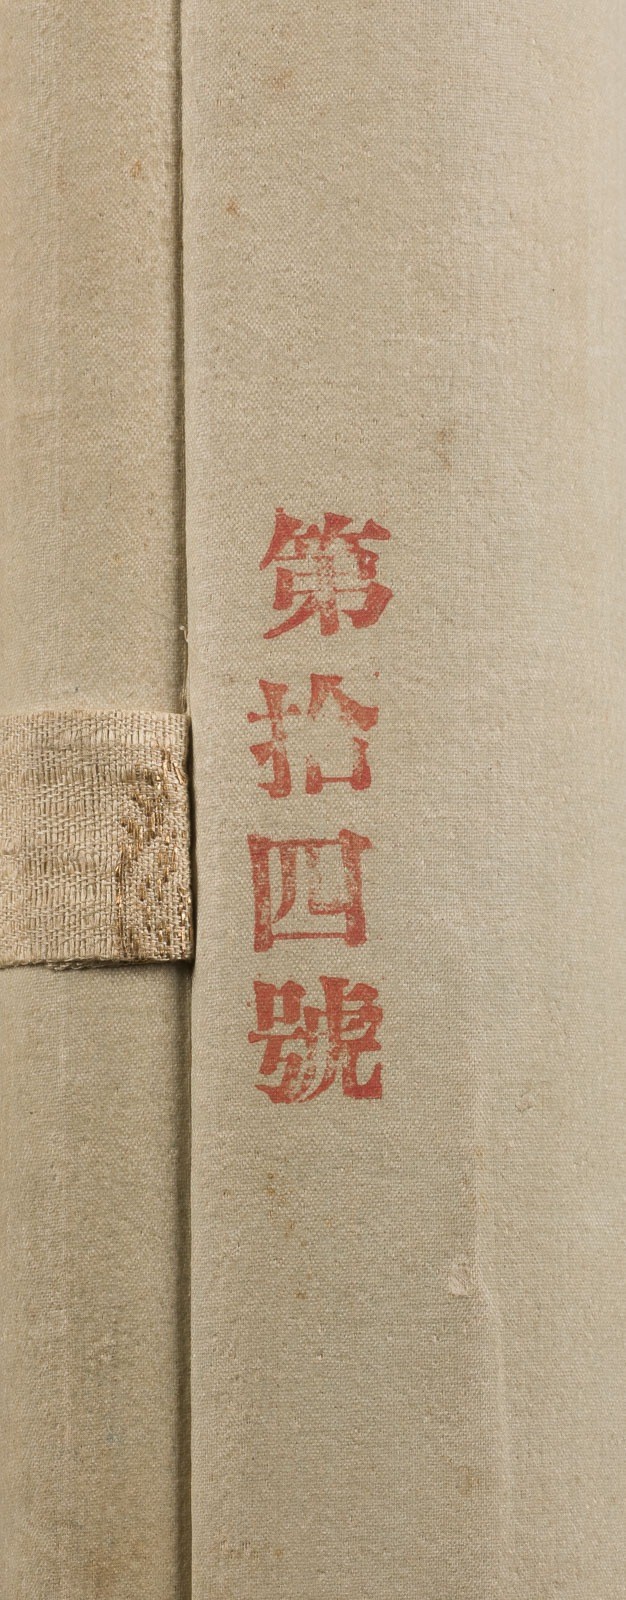 第拾四號